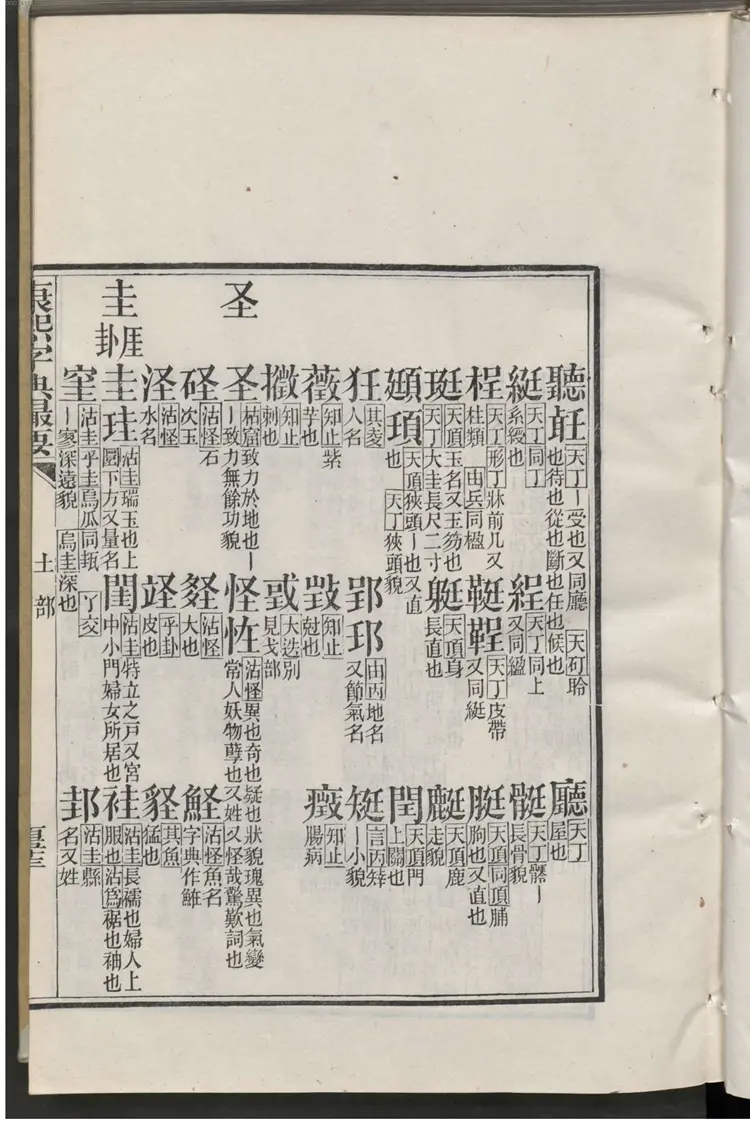 聽𦔻 天丁 ―受也又同廳 天矴 聆也待也從也斷也任也候也
廳 天丁 屋也
綎 天丁 同丁 系綬也
綎 天丁 同上 又同縕
骽 天丁 髎―長骨貌
桯 天丁 形丁 牀前几又柱類 由兵 同楹
鞓 天丁 皮帶 又同綎
脡 天頂 同頂 脯朐也又直也
珽 天頂 玉名又玉笏也 天丁 大圭長尺二寸
艇 天頂 身長直也
麗 天頂 鹿走貌
頲 天頂 狹頭―也又直也 天丁 狹頭貌
閏 天頂 門上關也
狂 其㚆 人名
郢 由丙 地名又節氣名
矩 言丙 矪―小貌
薇 知止 紫芋也
瞉 知止 尅也
癥 知止 腸病
擨 知止 刺也
或 大迭 別見戈部
圣
圣 枯窟 致力於地也――致力無餘功貌
怪恠 沽怪 異也奇也疑也狀貌瑰異也氣變常人妖物孽也又姓又怪哉驚歎詞也
硁 沽怪 石次玉
沽怪 大也
鮭 沽怪 魚名字典作䱺
泾 沽怪 水名
乎卦 皮也
其魚 猛也
圭 厓 卦
圭珪 沽圭 瑞玉也上圜下方又量名
閨 沽圭 特立之戸又宮中小門婦女所居也
袿 沽圭 長襦也婦人上服也 沽爲 裾也袖也
窐 沽圭 乎圭 烏瓜 同㼘 丫交 ―寥深遠貌 烏圭 深也
邽 沽圭 縣名又姓
康熙字典撮要
土部